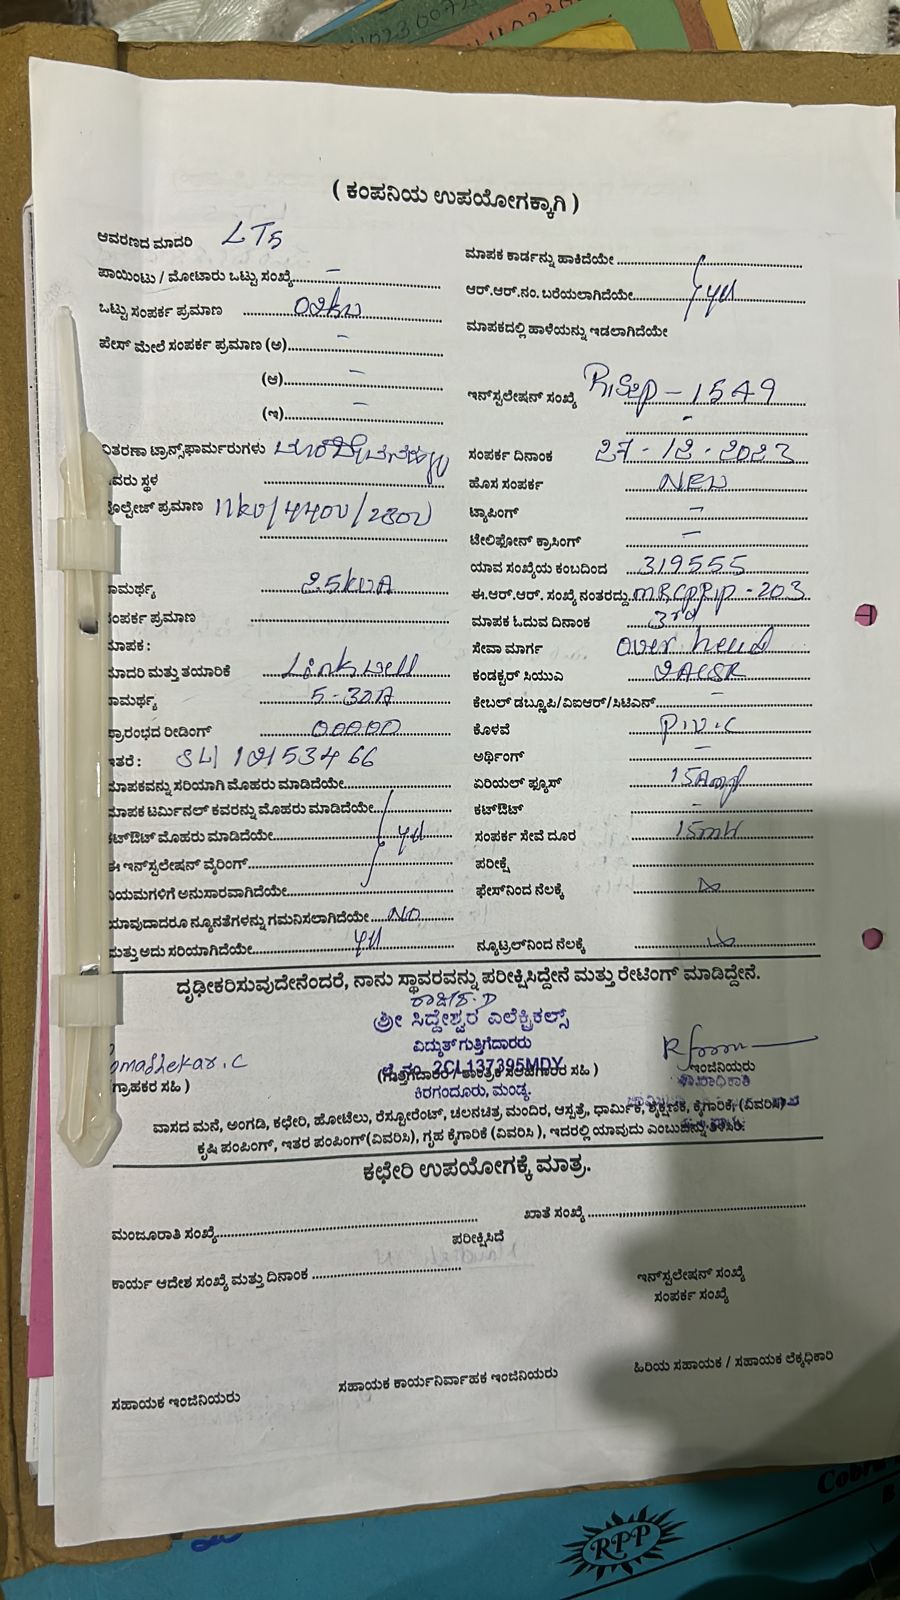 ( ಕಂಪನಿಯ ಉಪಯೋಗಕ್ಕಾಗಿ )
ಆವರಣದ ಮಾದರಿ LT5
ಪಾಯಿಂಟು / ಮೋಟಾರು ಒಟ್ಟು ಸಂಖ್ಯೆ -
ಒಟ್ಟು ಸಂಪರ್ಕ ಪ್ರಮಾಣ 02kw
ಪೇಸ್ ಮೇಲೆ ಸಂಪರ್ಕ ಪ್ರಮಾಣ (ಅ) -
(ಆ) -
(ಇ) -
ವಿತರಣಾ ಟ್ರಾನ್ಸ್‌ಫಾರ್ಮರುಗಳು
ವರು ಸ್ಥಳ
ವೋಲ್ಟೇಜ್ ಪ್ರಮಾಣ 11kv/440v/230v
ಸಾಮರ್ಥ್ಯ 25kVA
ಸಂಪರ್ಕ ಪ್ರಮಾಣ
ಮಾಪಕ :
ಮಾದರಿ ಮತ್ತು ತಯಾರಿಕೆ Linkwell
ಸಾಮರ್ಥ್ಯ 5-30A
ಪ್ರಾರಂಭದ ರೀಡಿಂಗ್ 00000
ಇತರೆ :
ಮಾಪಕವನ್ನು ಸರಿಯಾಗಿ ಮೊಹರು ಮಾಡಿದೆಯೇ
ಮಾಪಕ ಟರ್ಮಿನಲ್ ಕವರನ್ನು ಮೊಹರು ಮಾಡಿದೆಯೇ
ಕಟ್‌ಔಟ್ ಮೊಹರು ಮಾಡಿದೆಯೇ
ಈ ಇನ್‌ಸ್ಟಲೇಷನ್ ವೈರಿಂಗ್
ನಿಯಮಗಳಿಗೆ ಅನುಸಾರವಾಗಿದೆಯೇ
ಯಾವುದಾದರೂ ನ್ಯೂನತೆಗಳನ್ನು ಗಮನಿಸಲಾಗಿದೆಯೇ NO
ಮತ್ತು ಅದು ಸರಿಯಾಗಿದೆಯೇ
ಮಾಪಕ ಕಾರ್ಡನ್ನು ಹಾಕಿದೆಯೇ
ಆರ್.ಆರ್.ನಂ. ಬರೆಯಲಾಗಿದೆಯೇ
ಮಾಪಕದಲ್ಲಿ ಹಾಳೆಯನ್ನು ಇಡಲಾಗಿದೆಯೇ
ಇನ್‌ಸ್ಟಲೇಷನ್ ಸಂಖ್ಯೆ
ಸಂಪರ್ಕ ದಿನಾಂಕ 27-12-2023
ಹೊಸ ಸಂಪರ್ಕ NEW
ಟ್ಯಾಪಿಂಗ್ -
ಟೇಲಿಫೋನ್ ಕ್ರಾಸಿಂಗ್ -
ಯಾವ ಸಂಖ್ಯೆಯ ಕಂಬದಿಂದ 319555
ಈ.ಆರ್.ಆರ್. ಸಂಖ್ಯೆ ನಂತರದ್ದು
ಮಾಪಕ ಓದುವ ದಿನಾಂಕ 3rd
ಸೇವಾ ಮಾರ್ಗ over head
ಕಂಡಕ್ಟರ್ ಸಿಯುವಿ
ಕೇಬಲ್ ಡಬ್ಲೂಪಿ/ವಿಐಆರ್/ಸಿಟಿಎಸ್ -
ಕೊಳವೆ P.V.C
ಅರ್ಥಿಂಗ್ -
ಏರಿಯಲ್ ಫ್ಯೂಸ್ 15Amp
ಕಟ್‌ಔಟ್ -
ಸಂಪರ್ಕ ಸೇವೆ ದೂರ
ಪರೀಕ್ಷೆ
ಫೇಸ್‌ನಿಂದ ನೆಲಕ್ಕೆ
ನ್ಯೂಟ್ರಲ್‌ನಿಂದ ನೆಲಕ್ಕೆ
ದೃಢೀಕರಿಸುವುದೇನೆಂದರೆ, ನಾನು ಸ್ಥಾವರವನ್ನು ಪರೀಕ್ಷಿಸಿದ್ದೇನೆ ಮತ್ತು ರೇಟಿಂಗ್ ಮಾಡಿದ್ದೇನೆ.
ಶ್ರೀ ಸಿದ್ದೇಶ್ವರ ಎಲೆಕ್ಟ್ರಿಕಲ್ಸ್
ವಿದ್ಯುತ್ ಗುತ್ತಿಗೆದಾರರು
2CL137395MDY
ಕಿರಗಂದೂರು, ಮಂಡ್ಯ.
omashekar.C
(ಗ್ರಾಹಕರ ಸಹಿ )
ಇಂಜಿನಿಯರು
ವಾಸದ ಮನೆ, ಅಂಗಡಿ, ಕಛೇರಿ, ಹೋಟೆಲು, ರೆಸ್ಟೋರೆಂಟ್, ಚಲನಚಿತ್ರ ಮಂದಿರ, ಆಸ್ಪತ್ರೆ, ಧಾರ್ಮಿಕ, ಶೈಕ್ಷಣಿಕ, ಕೈಗಾರಿಕೆ, (ವಿವರಿಸಿ)
ಕೃಷಿ ಪಂಪಿಂಗ್, ಇತರ ಪಂಪಿಂಗ್ (ವಿವರಿಸಿ), ಗೃಹ ಕೈಗಾರಿಕೆ (ವಿವರಿಸಿ ), ಇದರಲ್ಲಿ ಯಾವುದು ಎಂಬುದನ್ನು ತಿಳಿಸಿರಿ.
ಕಛೇರಿ ಉಪಯೋಗಕ್ಕೆ ಮಾತ್ರ.
ಮಂಜೂರಾತಿ ಸಂಖ್ಯೆ
ಖಾತೆ ಸಂಖ್ಯೆ
ಪರೀಕ್ಷಿಸಿದೆ
ಕಾರ್ಯ ಆದೇಶ ಸಂಖ್ಯೆ ಮತ್ತು ದಿನಾಂಕ
ಇನ್‌ಸ್ಟಲೇಷನ್ ಸಂಖ್ಯೆ
ಸಂಪರ್ಕ ಸಂಖ್ಯೆ
ಸಹಾಯಕ ಇಂಜಿನಿಯರು
ಸಹಾಯಕ ಕಾರ್ಯನಿರ್ವಾಹಕ ಇಂಜಿನಿಯರು
ಹಿರಿಯ ಸಹಾಯಕ / ಸಹಾಯಕ ಲೆಕ್ಕಧಿಕಾರಿ
RPP